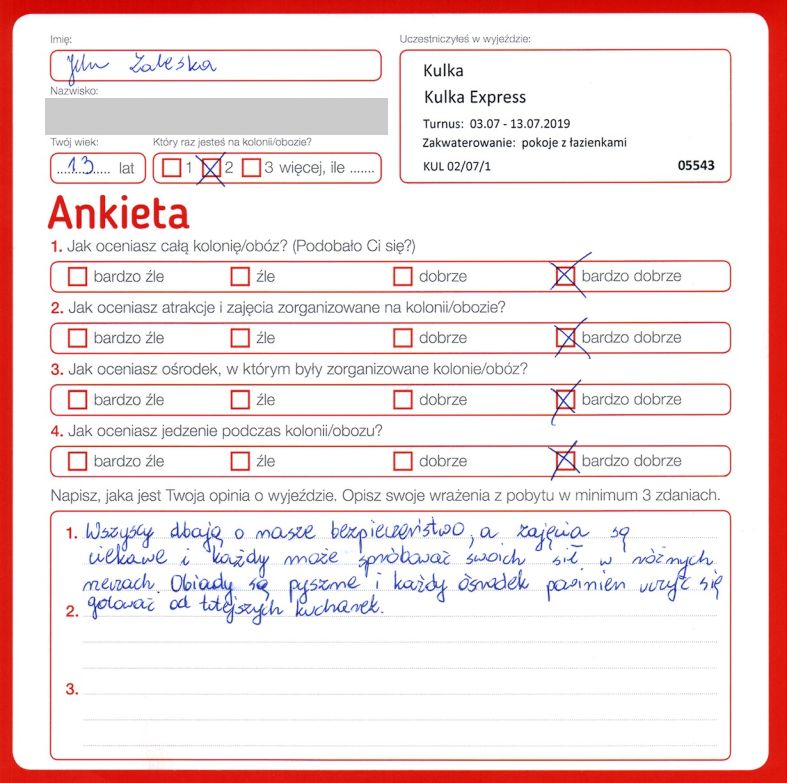 Imię:
Zaleska
Nazwisko:
Twój wiek:
13 lat
Który raz jesteś na kolonii/obozie?
1 2 3 więcej, ile .......
Uczestniczyłeś w wyjeździe:
Kulka
Kulka Express
Turnus: 03.07 - 13.07.2019
Zakwaterowanie: pokoje z łazienkami
KUL 02/07/1 05543
Ankieta
1. Jak oceniasz całą kolonię/obóz? (Podobało Ci się?)
bardzo źle źle dobrze bardzo dobrze
2. Jak oceniasz atrakcje i zajęcia zorganizowane na kolonii/obozie?
bardzo źle źle dobrze bardzo dobrze
3. Jak oceniasz ośrodek, w którym były zorganizowane kolonie/obóz?
bardzo źle źle dobrze bardzo dobrze
4. Jak oceniasz jedzenie podczas kolonii/obozu?
bardzo źle źle dobrze bardzo dobrze
Napisz, jaka jest Twoja opinia o wyjeździe. Opisz swoje wrażenia z pobytu w minimum 3 zdaniach.
1. Wszyscy dbają o nasze bezpieczeństwo, a zajęcia są
ciekawe i każdy może spróbować swoich sił w różnych
rzeczach. Obiady są pyszne i każdy ośrodek powinien uczyć się
2. gotować od tutejszych kucharek.
3.